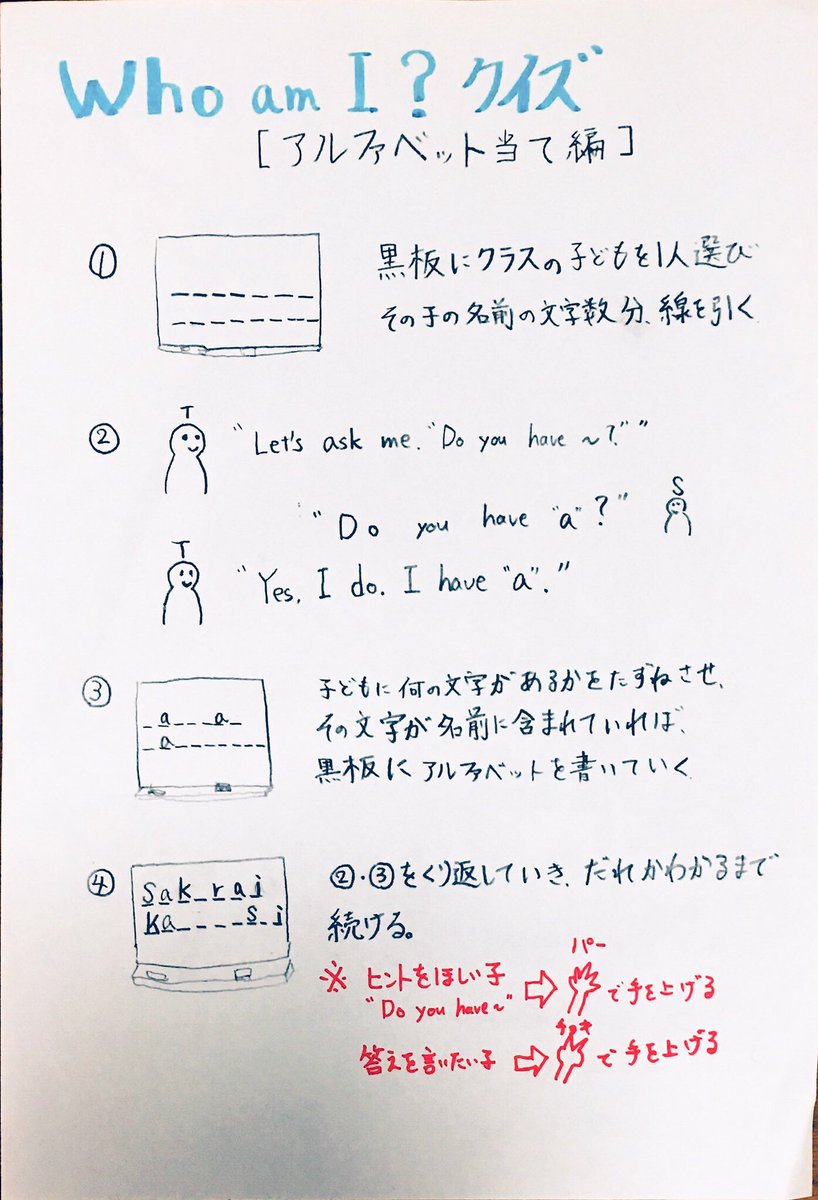 Who am I ? クイズ
[アルファベット当て編]
① 黒板にクラスの子どもを1人選び
その子の名前の文字数分、線を引く
② T "Let's ask me. "Do you have ~?" "
"Do you have "a" ?" S
T "Yes, I do. I have "a"."
③ 子どもに何の文字があるかをたずねさせ、
_a___a_
_a_______
その文字が名前に含まれていれば、
黒板にアルファベットを書いていく
④ ②・③をくり返していき、だれかわかるまで
Sak_rai
Ka____s_i
続ける。
パー
※ ヒントをほしい子 ⇨ で手を上げる
"Do you have~"
チョキ
答えを言いたい子 ⇨ で手を上げる